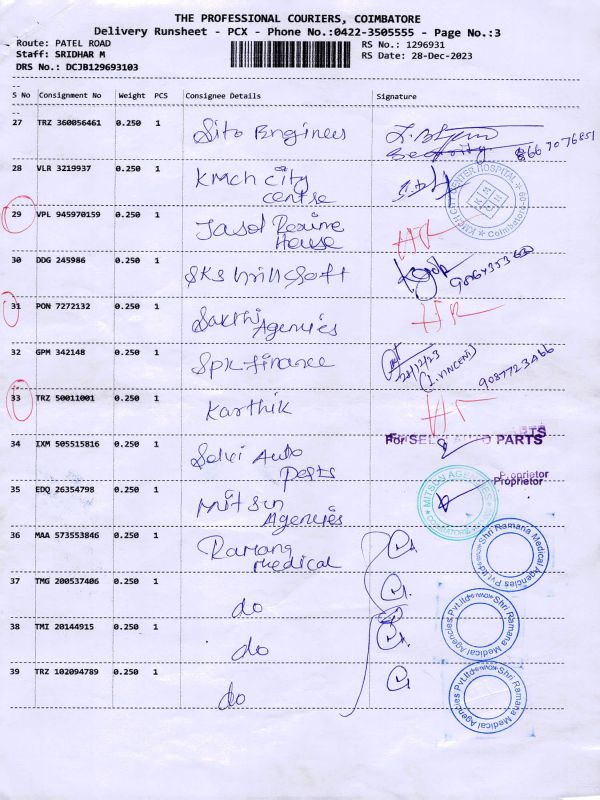 THE PROFESSIONAL COURIERS, COIMBATORE
Delivery Runsheet - PCX - Phone No.:0422-3505555 - Page No.:3
Route: PATEL ROAD
RS No.: 1296931
Staff: SRIDHAR M
RS Date: 28-Dec-2023
DRS No.: DCJB129693103
S No Consignment No Weight PCS Consignee Details Signature
27 TRZ 360056461 0.250 1 Sito Engineers
Security
28 VLR 3219937 0.250 1 KMCH City
centre
KMCH CITY CENTER HOSPITAL
Coimbatore
29 VPL 945970159 0.250 1
House
30 DDG 245986 0.250 1 SKS
31 PON 7272132 0.250 1 Sakthi
Agencies
32 GPM 342148 0.250 1 SPK finance
28/12/23
(I. VINCENT)
33 TRZ 50011001 0.250 1 Karthik
For SELVI AUTO PARTS
34 IXM 505515816 0.250 1 Selvi Auto
Parts
Proprietor
35 EDQ 26354798 0.250 1 Mitsun
Agencies
MITSUN AGENCIES
36 MAA 573553846 0.250 1 Ramana
medical
Shri Ramana Medical Agencies Pvt Ltd
37 TMG 200537406 0.250 1 do
38 TMI 20144915 0.250 1 do
Shri Ramana Medical Agencies Pvt Ltd
39 TRZ 102094789 0.250 1 do
Shri Ramana Medical Agencies Pvt Ltd